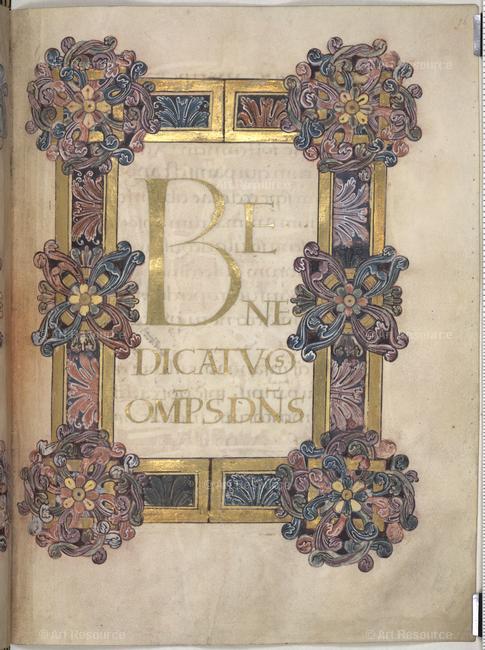 BE
NE
DICAT VOS
OMPS DNS
© Art Resource
© Art Resource
© Art Resource
© Art Resource